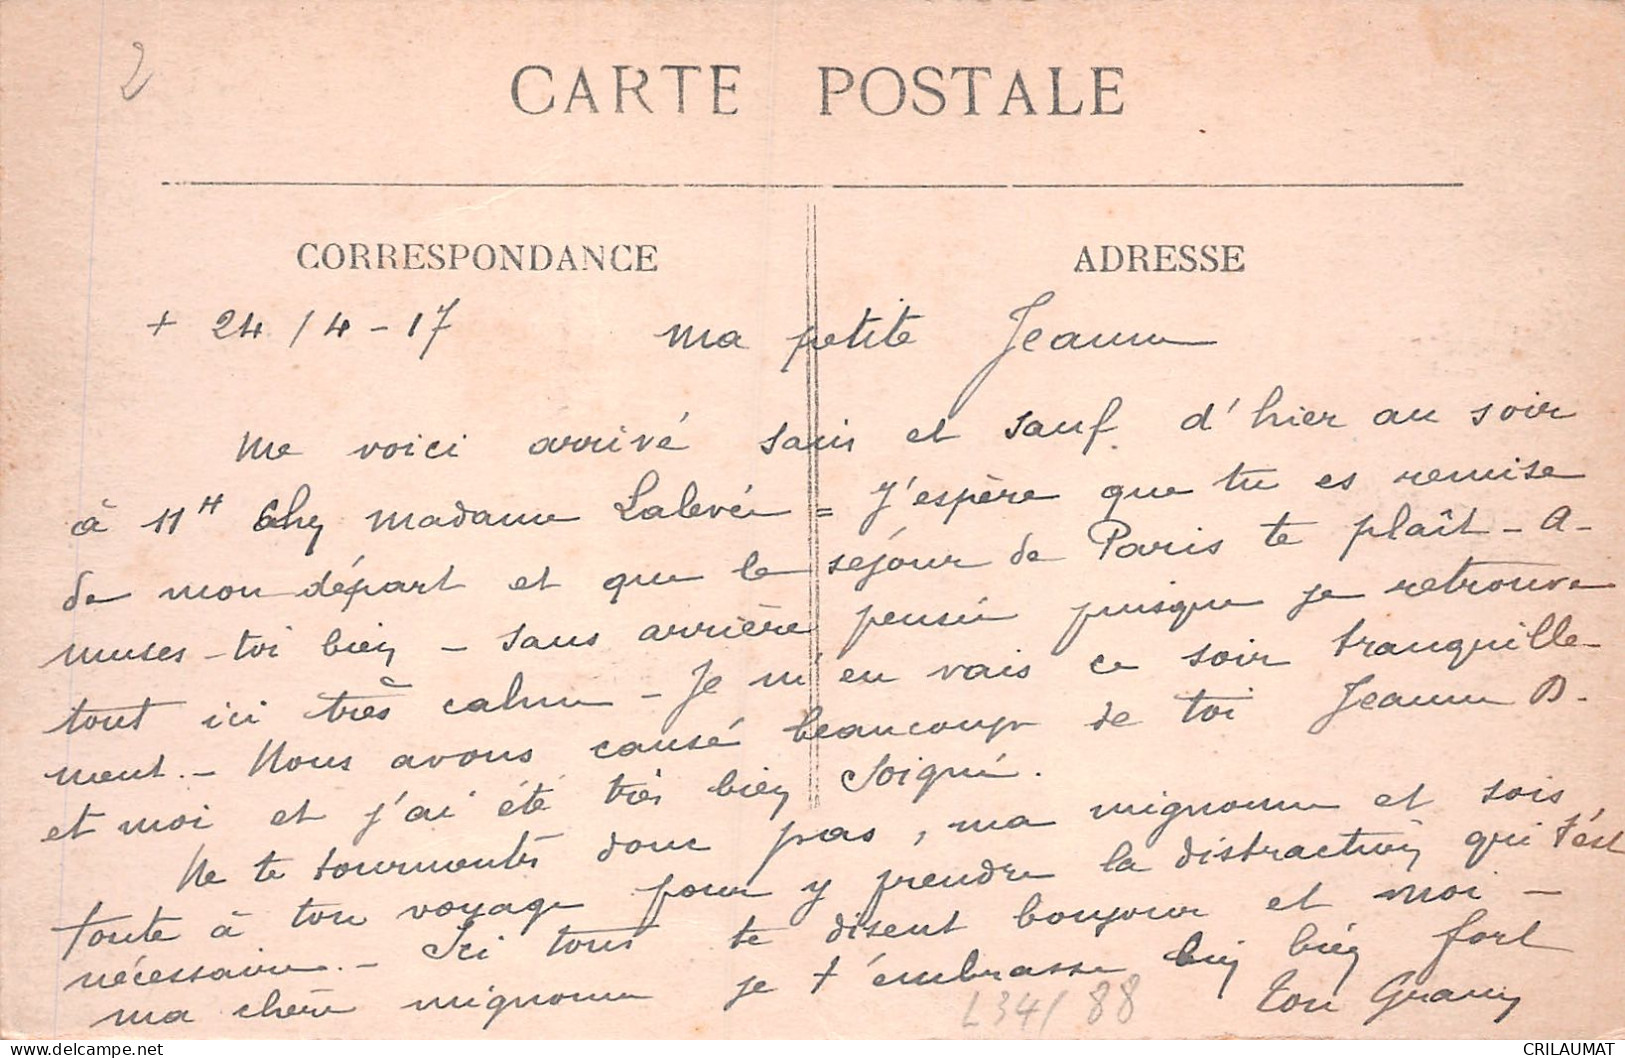 2
CARTE POSTALE
CORRESPONDANCE
ADRESSE
+ 24 / 4 - 17
Ma petite Jeanne
Me voici arrivé sain et sauf d'hier au soir
à 11H chez Madame Lalevée = J'espère que tu es remise
de mon départ et que le séjour de Paris te plaît - A-
muses-toi bien - sans arrière pensée puisque je retrouve
tout ici très calme - Je m'en vais ce soir tranquille-
ment. - Nous avons causé beaucoup de toi Jeanne D.
et moi et j'ai été très bien soigné.
Ne te tourmentes donc pas, ma mignonne et sois
toute à ton voyage pour y prendre la distraction qui t'est
nécessaire. - Ici tous te disent bonjour et moi -
ma chère mignonne je t'embrasse bien bien fort
ton
L34/88
CRILAUMAT